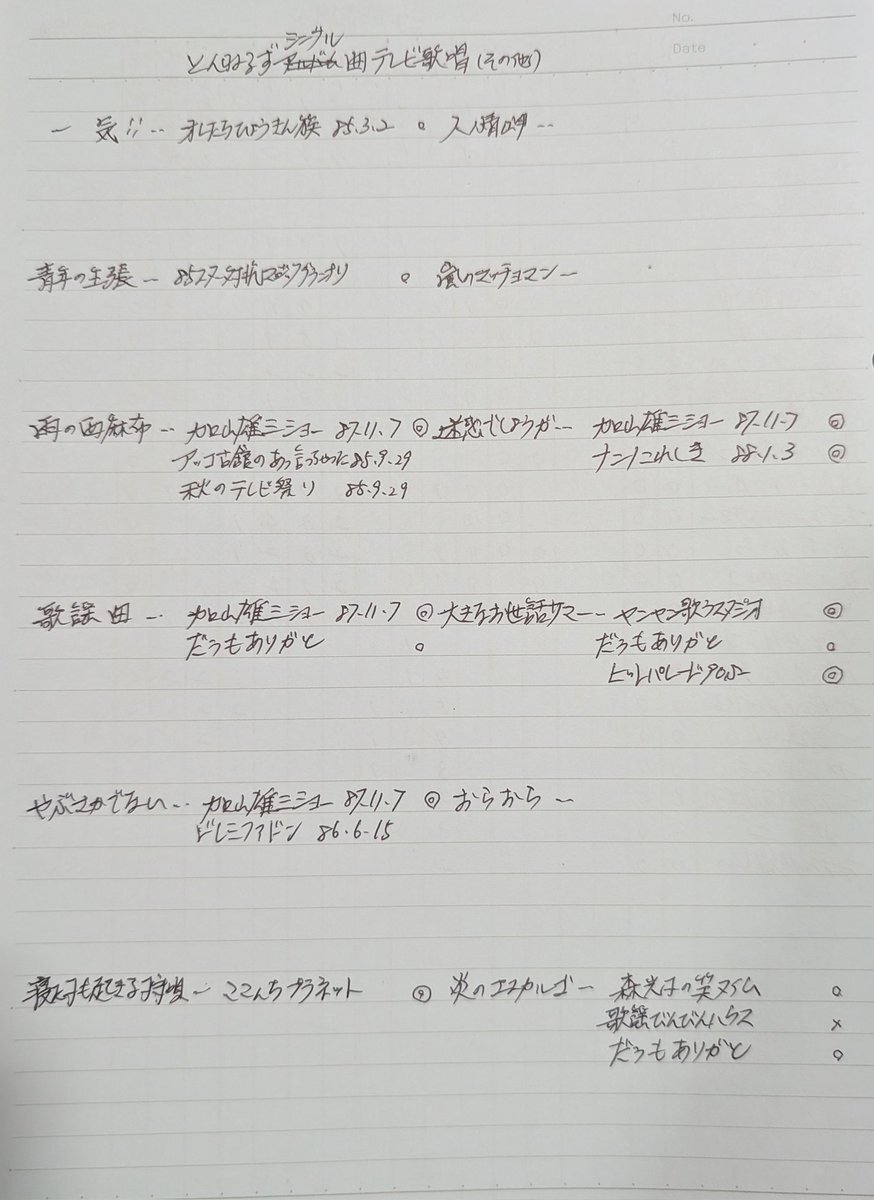 No.
Date
シングル
とんねるず曲テレビ歌唱(その他)
一気!! … オレたちひょうきん族 85.3.2 ○ 人情岬 …
青年の主張 … 85スター対抗 ○ 嵐のマッチョマン …
雨の西麻布 … 加山雄三ショー 87.11.7 ◎ 迷惑でしょうが … 加山雄三ショー 87.11.7 ◎
アッコ古舘のあっ言っちゃった 85.9.29 ナン!これしき 88.1.3 ◎
秋のテレビ祭り 85.9.29
歌謡曲 … 加山雄三ショー 87.11.7 ◎ 大きなお世話サマー … ヤンヤン歌うスタジオ ◎
だうもありがと ○ だうもありがと ○
ヒットパレード90 ◎
やぶさかでない … 加山雄三ショー 87.11.7 ◎ おらおら …
ドレミファドン 86.6.15
寝た子も起きる子守唄 … ここんちプラネット ◎ 炎のエスカルゴ … 森光子の笑タイム ○
歌謡びんびんハウス ×
だうもありがと ○